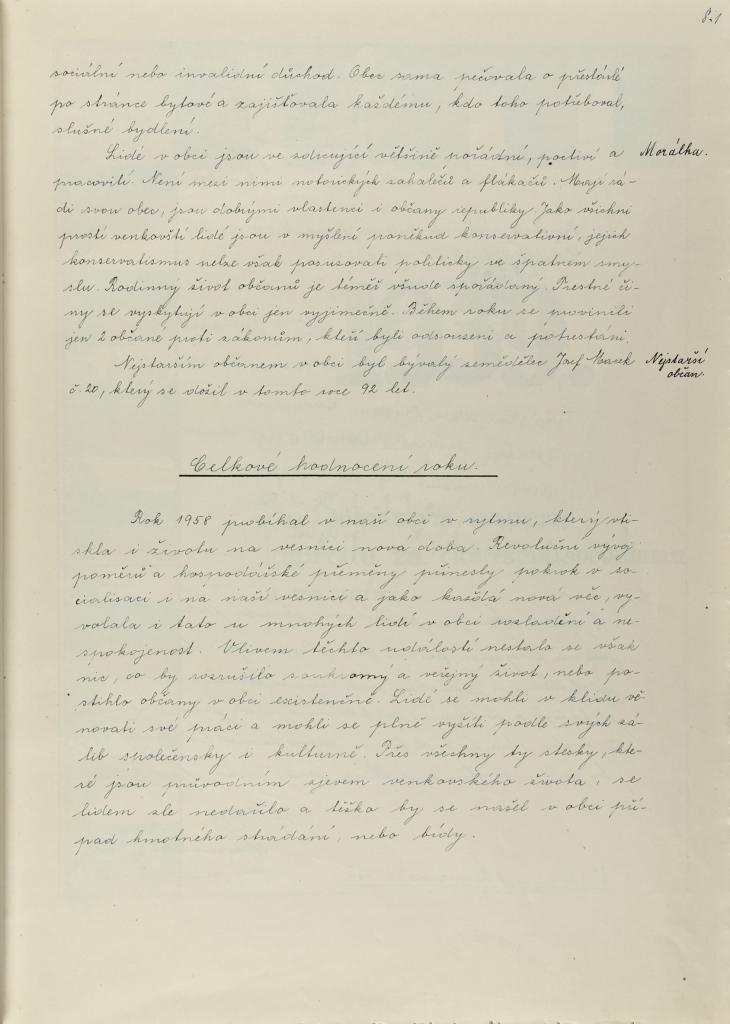 81
sociální nebo invalidní důchod. Obec sama pečovala o přestárlé
po stránce bytové a zajišťovala každému, kdo toho potřeboval,
slušné bydlení.
Lidé v obci jsou ve zdrcující většině pořádné, poctiví a Morálka.
pracovití. Není mezi nimi notorických zahalečů a flákačů. Mají rá-
di svou obec, jsou dobrými vlastenci i občany republiky. Jako všichni
prostí venkovští lidé jsou v myšlení poněkud konservativní, jejich
konservatismus nelze však posuzovati politicky ve špatném smy-
slu. Rodinný život občanů je téměř všude spořádaný. Trestné či-
ny se vyskytují v obci jen vyjimečně. Během roku se provinili
jen 2 občané proti zákonům, kteří byli odsouzeni a potrestáni.
Nejstarším občanem v obci byl bývalý zemědělec Josef Macek Nejstarší
č. 20, který se dožil v tomto roce 92 let. občan.
Celkové hodnocení roku.
Rok 1958 probíhal v naší obci v rytmu, který vti-
skla i životu na vesnici nová doba. Revoluční vývoj
poměrů a hospodářské přeměny přinesly pokrok v so-
cialisaci i na naší vesnici a jako každá nová věc, vy-
volala i tato u mnohých lidí v obci rozladění a ne-
spokojenost. Vlivem těchto událostí nestalo se však
nic, co by rozrušilo soukromý a veřejný život, nebo po-
stihlo občany v obci existenčně. Lidé se mohli v klidu vě-
novati své práci a mohli se plně vyžíti podle svých zá-
lib společensky i kulturně. Přes všechny ty stesky, kte-
ré jsou průvodním zjevem venkovského života, se
lidem zle nedařilo a těžko by se našel v obci pří-
pad hmotného strádání, nebo bídy.